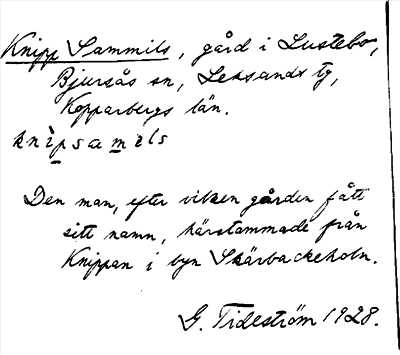 Knipp Sammils, gård i Lustebo,
Bjursås sn, Leksands tg,
Kopparbergs län.
knìpsamels
Den man, efter vilken gården fått
sitt namn, härstammade från
Knippan i byn Skärbackeholn.
G. Tideström 1928.